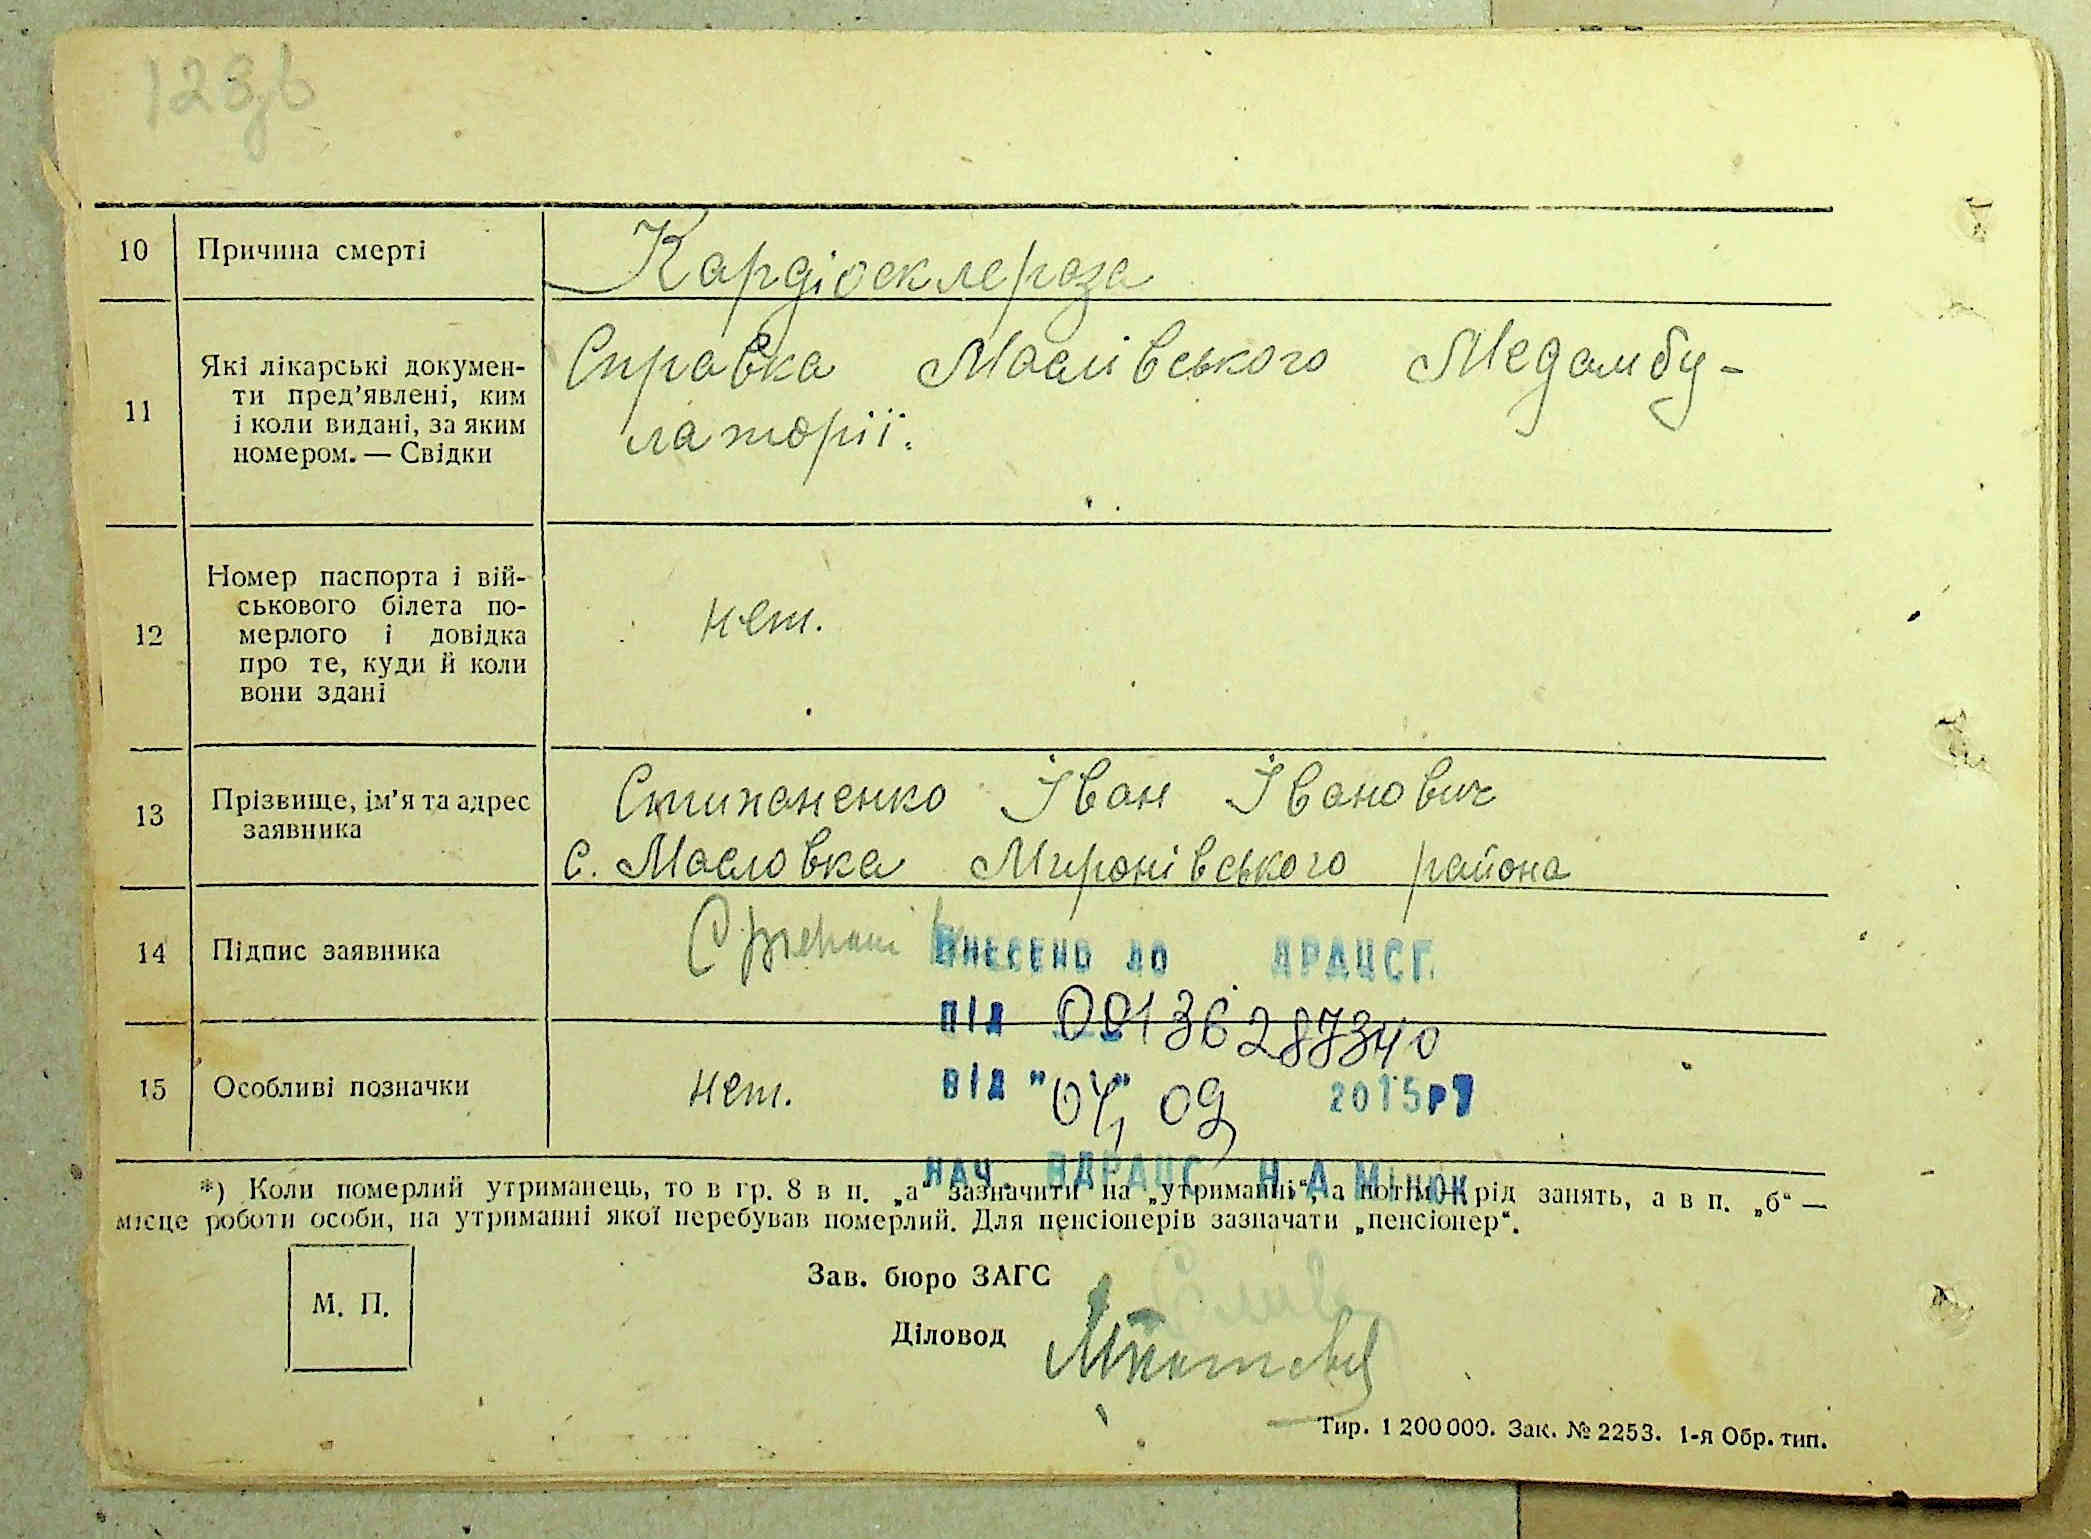 123
10 Причина смерті Кардіосклероза
11 Які лікарські докумен-
ти пред’явлені, ким
і коли видані, за яким
номером. — Свідки
Справка Маслівського Медамбу-
латорії.
12 Номер паспорта і вій-
ськового білета по-
мерлого і довідка
про те, куди й коли
вони здані
нет.
13 Прізвище, ім’я та адрес
заявника
Стипаненко Іван Іванович
с. Масловка Миронівського района
14 Підпис заявника
ВНЕСЕНО ДО ДРАЦСГ.
ПІД 00136287340
15 Особливі позначки нет.
ВІД "04" 09 2015р
НАЧ. ВДРАЦС Н.А МІНЮК
*) Коли померлий утриманець, то в гр. 8 в п. „а“ зазначити на „утриманні“, а потім — рід занять, а в п. „б“ —
місце роботи особи, на утриманні якої перебував померлий. Для пенсіонерів зазначати „пенсіонер“.
М. П.
Зав. бюро ЗАГС
Діловод
Тир. 1 200 000. Зак. № 2253. 1-я Обр. тип.